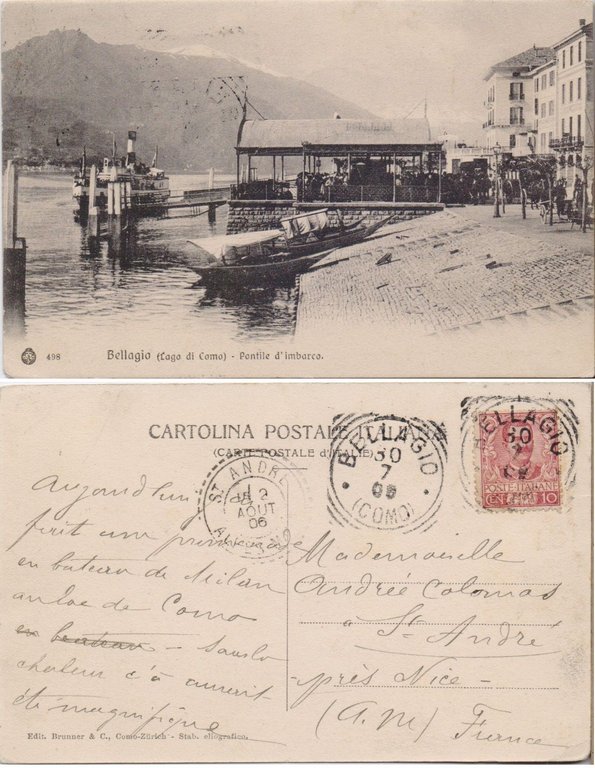 498 Bellagio (Lago di Como) - Pontile d'imbarco.
CARTOLINA POSTALE ITALIANA
(CARTE POSTALE d'ITALIE)
BELLAGIO
30
7
06
(COMO)
BELLAGIO
30
7
POSTE ITALIANE
CENT. 10
ST ANDRÉ
2
AOUT
06
Aujourd'hui
une promenade
en bateau de Milan
au lac de Como
en bateau - Sans la
chaleur ç'a aurait
été magnifique
Mademoiselle
Andrée Colomas
à St André
près Nice -
(A.M) France
Edit. Brunner & C., Como-Zürich - Stab. eliografico.